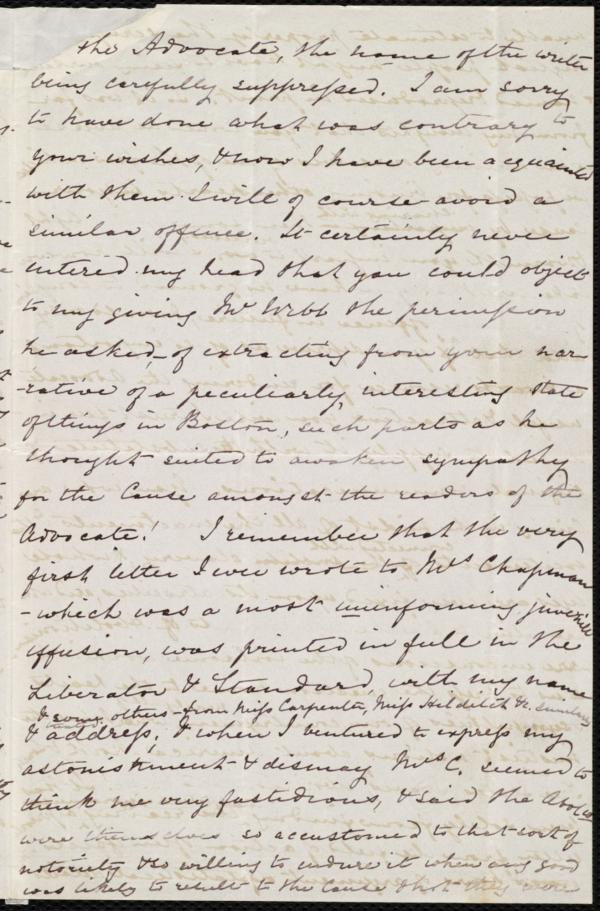 the Advocate, the name of the writer
being carefully suppressed. I am sorry
to have done what was contrary to
your wishes, & now I have been acquainted
with them I will of course avoid a
similar offence. It certainly never
entered my head that you could object
to my giving Mr Webb the permission
he asked, of extracting from your nar-
-rative of a peculiarly interesting state
of things in Boston, such parts as he
thought suited to awaken sympathy
for the Cause amongst the readers of the
Advocate! I remember that the very
first letter I ever wrote to Mrs Chapman
- which was a most uninforming juvenile
effusion, was printed in full in the
Liberator & Standard, with my name
& some others - from Miss Carpenter, Miss Hilditch &c. similarly
& address; & when I ventured to express my
astonishment & dismay Mrs C. seemed to
think me very fastidious, & said the Abolits
were themselves so accustomed to that sort of
notoriety & so willing to endure it when any good
was likely to result to the Cause that they were